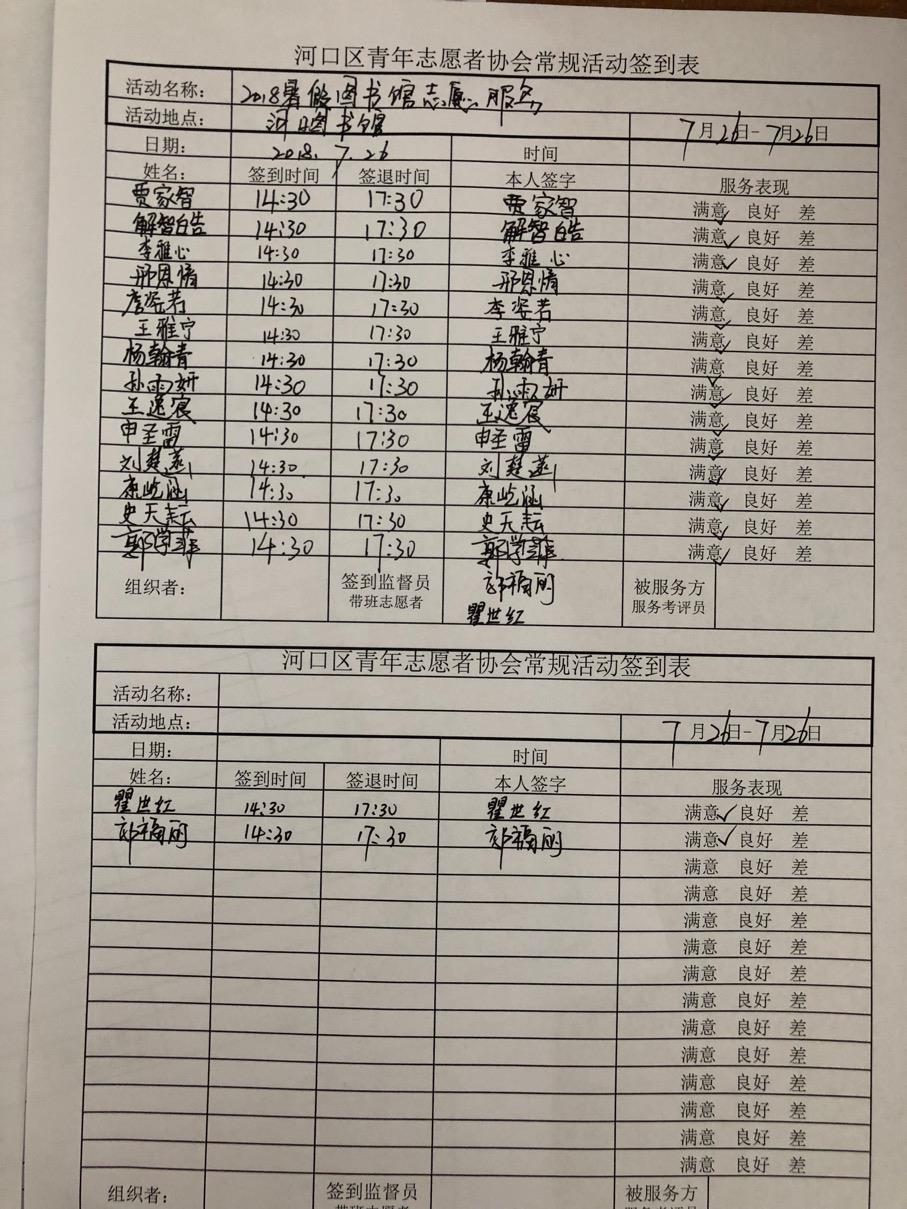 河口区青年志愿者协会常规活动签到表
活动名称： 2018暑假图书馆志愿服务
活动地点： 河口图书馆 7月26日-7月26日
日期： 2018.7.26 时间
姓名： 签到时间 签退时间 本人签字 服务表现
贾家智 14:30 17:30 贾家智 满意✓ 良好 差
解智皓 14:30 17:30 解智皓 满意✓ 良好 差
李雅心 14:30 17:30 李雅心 满意✓ 良好 差
邢恩情 14:30 17:30 邢恩情 满意✓ 良好 差
李姿若 14:30 17:30 李姿若 满意✓ 良好 差
王雅宁 14:30 17:30 王雅宁 满意✓ 良好 差
杨翰青 14:30 17:30 杨翰青 满意✓ 良好 差
孙雨妍 14:30 17:30 孙雨妍 满意✓ 良好 差
王逸宸 14:30 17:30 王逸宸 满意✓ 良好 差
申圣雷 14:30 17:30 申圣雷 满意✓ 良好 差
14:30 17:30 满意✓ 良好 差
康屹涵 14:30 17:30 康屹涵 满意✓ 良好 差
史天耘 14:30 17:30 史天耘 满意✓ 良好 差
郭学菲 14:30 17:30 郭学菲 满意✓ 良好 差
组织者： 签到监督员 郭福丽 被服务方
带班志愿者 瞿世红 服务考评员
河口区青年志愿者协会常规活动签到表
活动名称：
活动地点： 7月26日-7月26日
日期： 时间
姓名： 签到时间 签退时间 本人签字 服务表现
瞿世红 14:30 17:30 瞿世红 满意✓ 良好 差
郭福丽 14:30 17:30 郭福丽 满意✓ 良好 差
满意 良好 差
满意 良好 差
满意 良好 差
满意 良好 差
满意 良好 差
满意 良好 差
满意 良好 差
满意 良好 差
满意 良好 差
满意 良好 差
满意 良好 差
满意 良好 差
组织者： 签到监督员 被服务方
带班志愿者 服务考评员